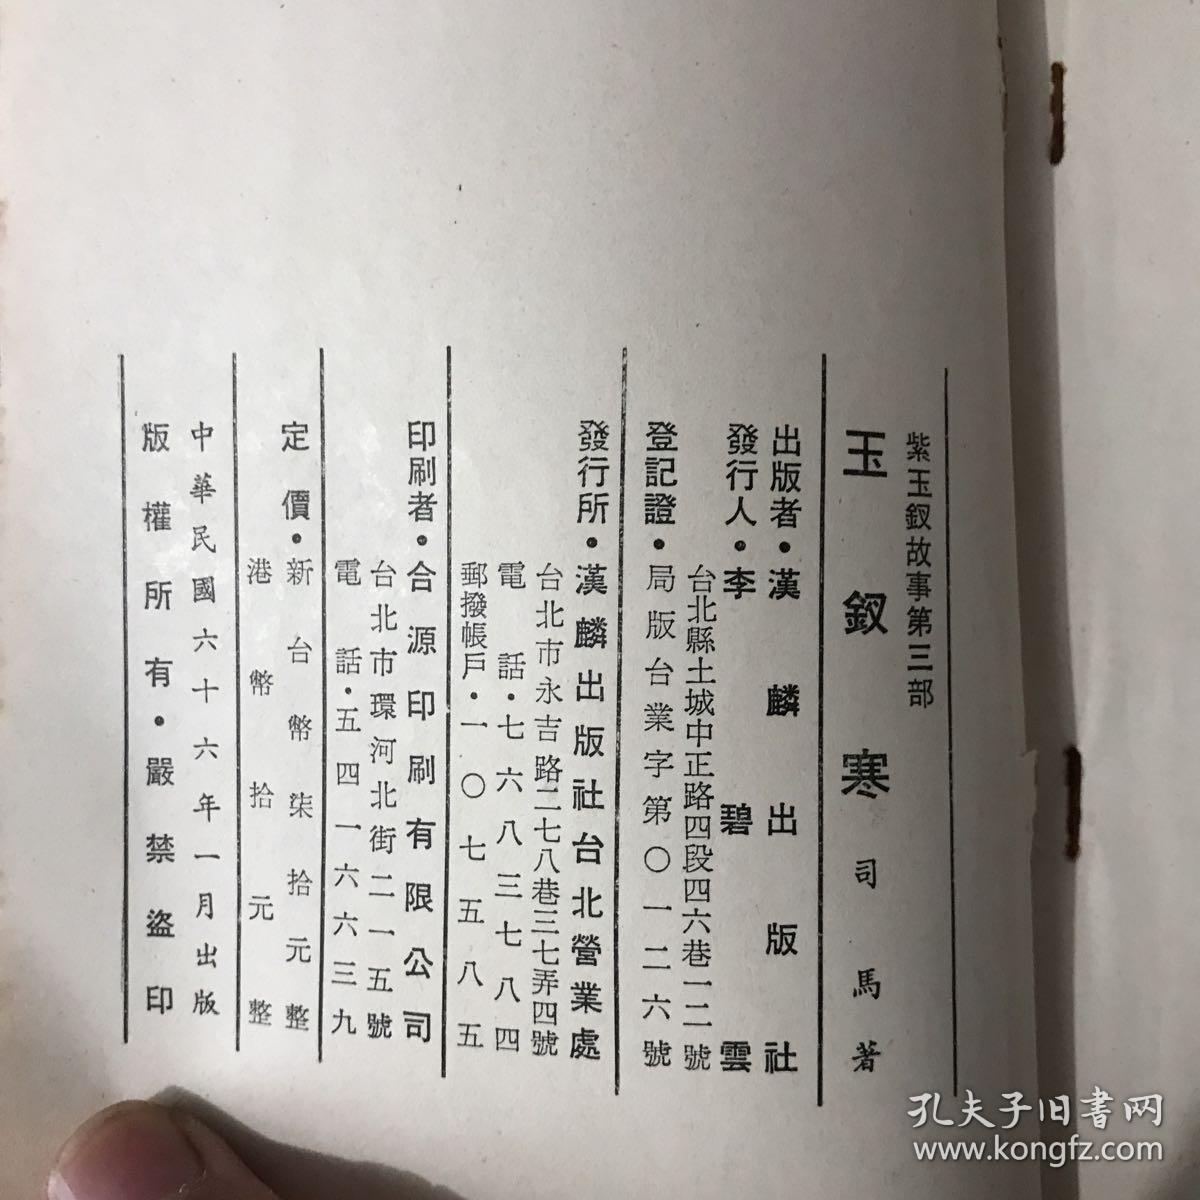 紫玉釵故事第三部
玉釵寒 司馬著
出版者・漢麟出版社
發行人・李碧雲
台北縣土城中正路四段四六巷一二號
登記證・局版台業字第〇一二六號
發行所・漢麟出版社台北營業處
台北市永吉路二七八巷三七弄四號
電話・七六八三七八四
郵撥帳戶・一〇七五八五
印刷者・合源印刷有限公司
台北市環河北街二一五號
電話・五四一六六三九
定價・新台幣柒拾元整
港幣拾元整
中華民國六十六年一月出版
版權所有・嚴禁盜印
孔夫子旧書网
www.kongfz.com